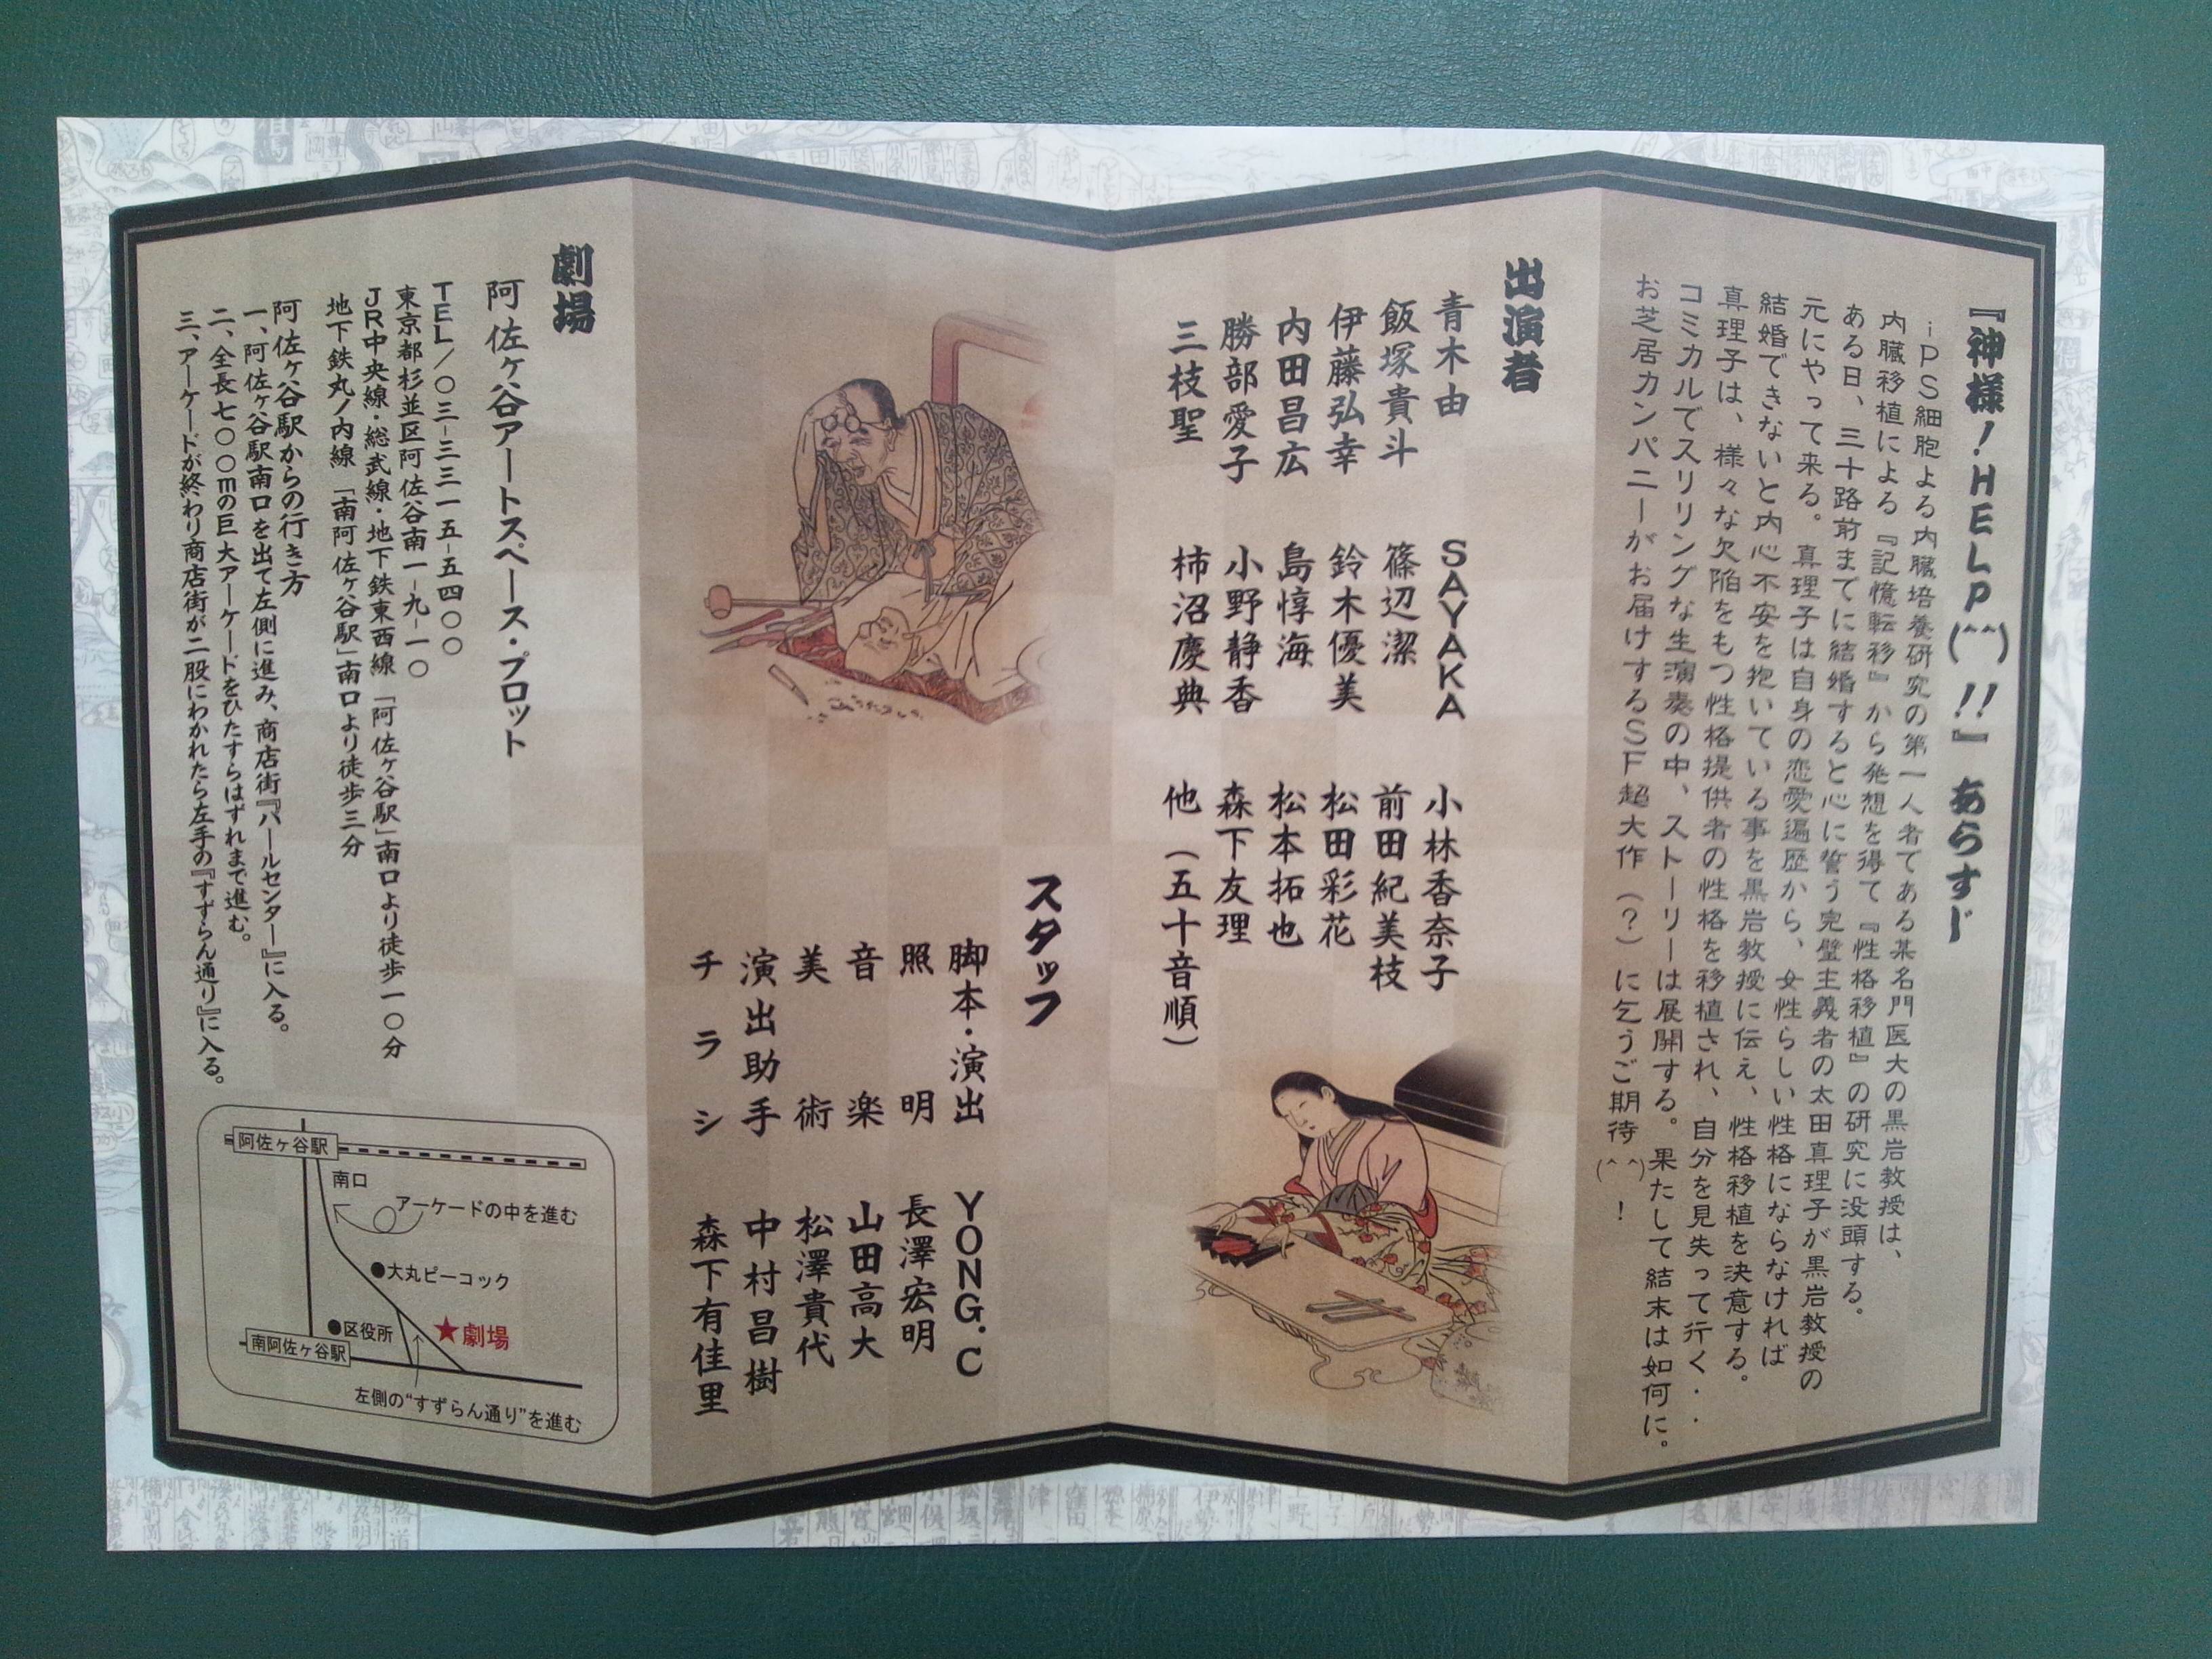 『神様！HELP(^^)!!』あらすじ
iPS細胞よる内臓培養研究の第一人者である某名門医大の黒岩教授は、
内臓移植による『記憶転移』から発想を得て『性格移植』の研究に没頭する。
ある日、三十路前までに結婚すると心に誓う完璧主義者の太田真理子が黒岩教授の
元にやって来る。真理子は自身の恋愛遍歴から、女性らしい性格にならなければ
結婚できないと内心不安を抱いている事を黒岩教授に伝え、性格移植を決意する。
真理子は、様々な欠陥をもつ性格提供者の性格を移植され、自分を見失って行く・・
コミカルでスリリングな生演奏の中、ストーリーは展開する。果たして結末は如何に。
お芝居カンパニーがお届けするSF超大作（？）に乞うご期待(^ ^)！
出演者
青木由　SAYAKA　小林香奈子
飯塚貴斗　篠辺潔　前田紀美枝
伊藤弘幸　鈴木優美　松田彩花
内田昌広　島惇海　松本拓也
勝部愛子　小野静香　森下友理
三枝聖　柿沼慶典　他（五十音順）
スタッフ
脚本・演出　YONG.C
照明　長澤宏明
音楽　山田高大
美術　松澤貴代
演出助手　中村昌樹
チラシ　森下有佳里
劇場
阿佐ヶ谷アートスペース・プロット
TEL／〇三-三三一五-五四〇〇
東京都杉並区阿佐谷南一-九-一〇
JR中央線・総武線・地下鉄東西線「阿佐ヶ谷駅」南口より徒歩一〇分
地下鉄丸ノ内線「南阿佐ヶ谷駅」南口より徒歩三分
阿佐ヶ谷駅からの行き方
一、阿佐ヶ谷駅南口を出て左側に進み、商店街『パールセンター』に入る。
二、全長七〇〇mの巨大アーケードをひたすらはずれまで進む。
三、アーケードが終わり商店街が二股にわかれたら左手の『すずらん通り』に入る。
阿佐ヶ谷駅
南口
アーケードの中を進む
●大丸ピーコック
●区役所
★劇場
南阿佐ヶ谷駅
左側の“すずらん通り”を進む